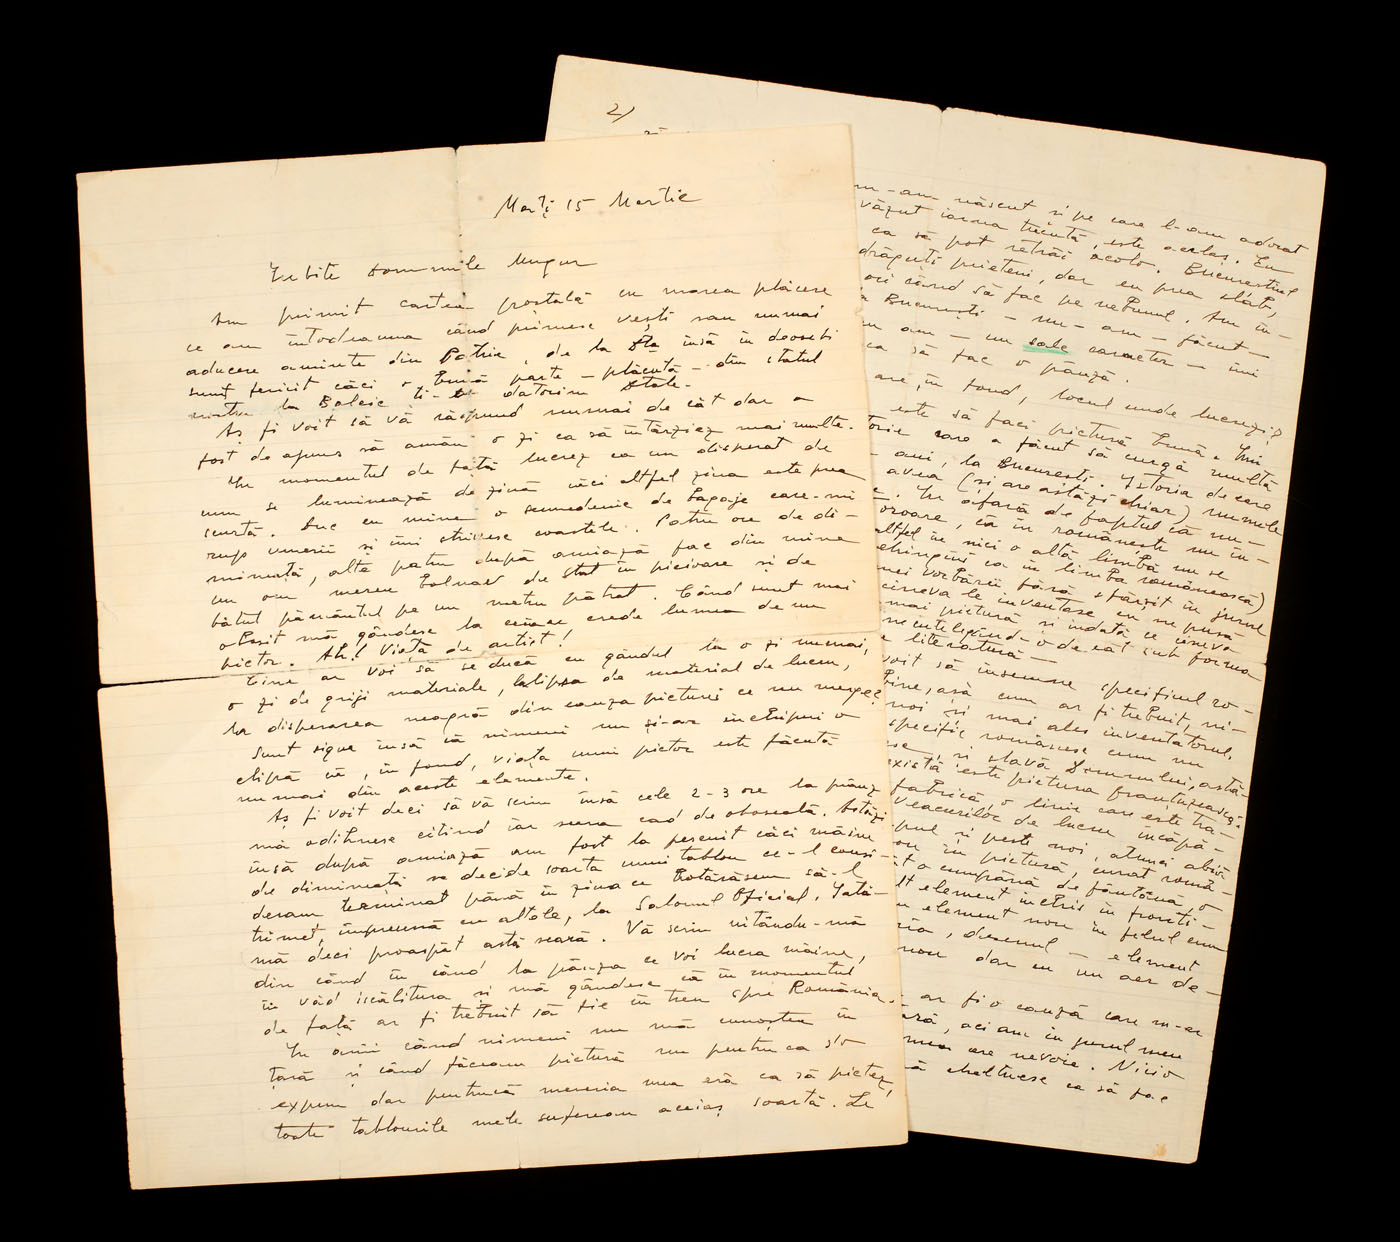 Marți 15 Martie
Iubite domnule Ungur
Am primit cartea poștală cu marea plăcere
ce am întodeauna când primesc vești sau numai
aducere aminte din Patrie, de la Dta însă în deosebi
sunt fericit căci o bună parte – plăcută – din statul
nostru la Balcic ți-o datorim Dtale.
Aș fi voit să vă răspund numai de cât dar a
fost de ajuns să amân o zi ca să întârziez mai multe.
In momentul de față lucrez ca un disperat de
cum se luminează de ziuă căci altfel ziua este prea
scurtă. Duc cu mine o sumedenie de bagaje care-mi
rup umerii și îmi strivesc coastele. Patru ore de di-
mineață, alte patru după amiază fac din mine
un om mereu bolnav de stat în picioare și de
bătut pământul pe un metru pătrat. Când sunt mai
obosit mă gândesc la ceiace crede lumea de un
pictor. Ah! Viață de artist!
Cine ar voi să se ducă cu gândul la o zi numai,
o zi de griji materiale, la lipsa de material de lucru,
la disperarea neagră din cauza picturii ce nu merge?
Sunt sigur însă că nimeni nu și-ar închipui o
clipă că, în fond, viața unui pictor este făcută
numai din aceste elemente.
Aș fi voit deci să vă scriu însă cele 2-3 ore la prânz
mă odihnesc citind iar seara cad de oboseală. Astăzi
însă după amiază am fost la pescuit căci mâine
de dimineață se decide soarta unui tablou ce-l consi-
deram terminat până în ziua ce hotărâsem să-l
trimet, împreună cu altele, la Salonul Oficial. Iată-
mă deci proaspăt astă seară. Vă scriu uitându-mă
din când în când la pânza ce voi lucra mâine,
îi văd iscălitura și mă gândesc că în momentul
de față ar fi trebuit să fie în tren spre România.
In anii când nimeni nu mă cunoștea în
țară și când făceam pictură nu pentru ca s'o
expun dar pentrucă meseria mea eră ca să pictez,
toate tablourile mele sufereau aceiaș soartă. Le
2/
m-am născut și pe care l-am adorat
văzut iarna trecută, este acelaș. Eu
ca să pot retrăi acolo. Bucureștiul
drăguți prieteni, dar eu prea slab,
ori când să fac pe nebunul. Am în-
București – nu-am – făcut –
am – un sale caracter – îmi
ca să fac o pauză.
are, în fond, locul unde lucrezi?
este să faci pictură bună. Imi
torie care a făcut să curgă multă
ani, la București. Istoria de care
avea (și are astăzi chiar) numele
. In afară de faptul că nu-
oroare, că în românește nu în-
altfel în nici o altă limbă nu se
chingini ca în limba românească)
nei vorbării fără sfârșit în jurul
cineva le inventase cu ne pusă
mai pictură și îndată ce cineva
neințelegând-o de cât sub forma
e literatură –
voit să însemne specificul ro-
bine, așà cum ar fi trebuit, ni-
noi și mai ales inventatorul.
specific românesc cum nu
se, și slavă Domnului, astă-
există este pictura franțuzească,
fabrică o linie care este tra-
veacurilor de lucru încăpă-
pul și peste noi, atunci abia
ou în pictură, curat româ-
t o cumpănă de fântână, o
lt element închis în fronti-
n element nou în felul cum
ria, desenul – element
nou dar cu un aer de-
ar fi o cauză care m-ar
ară, aci am în jurul meu
mea are nevoie. Nici o
ă cheltuesc ca să fac